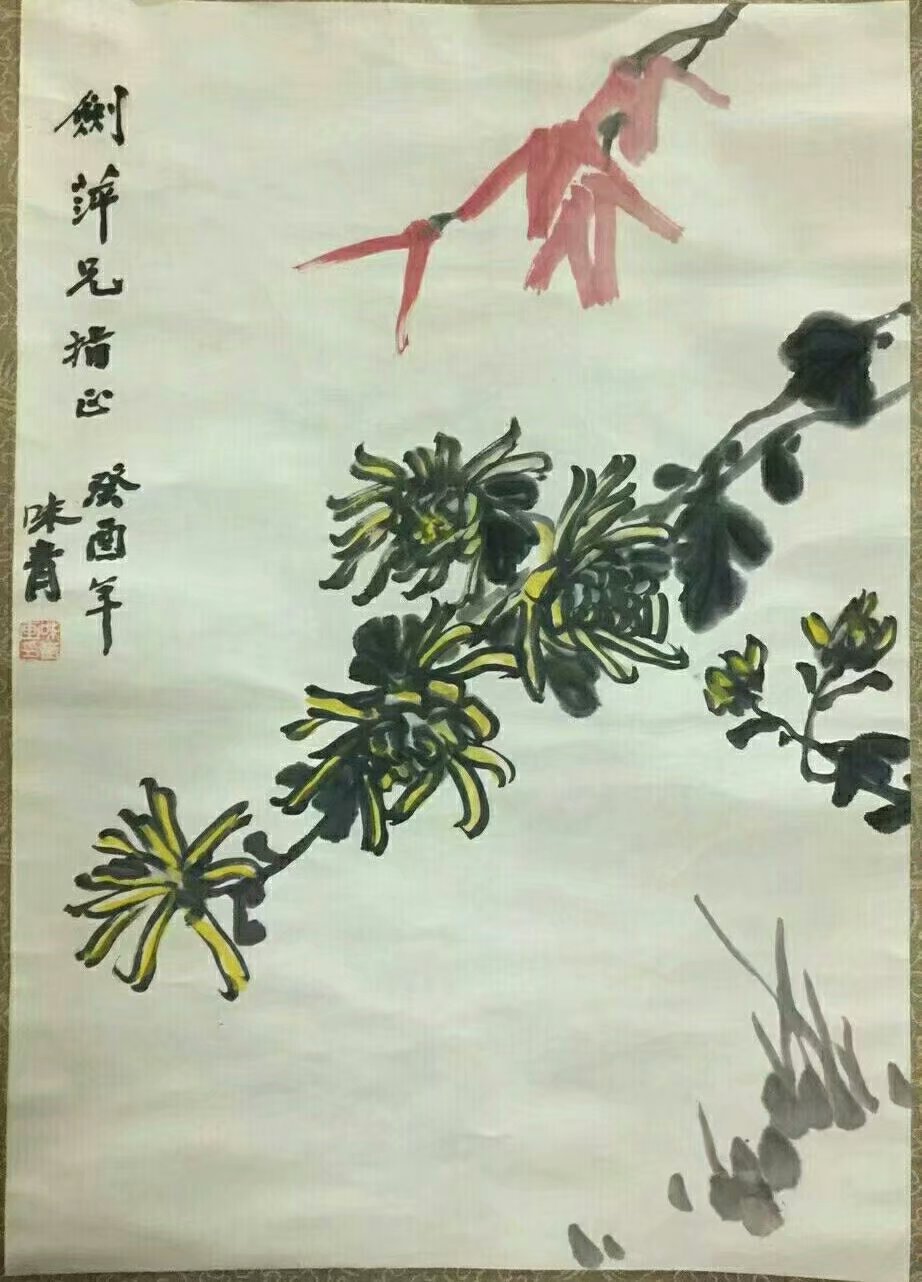 劍萍兄指正 癸酉年
味青